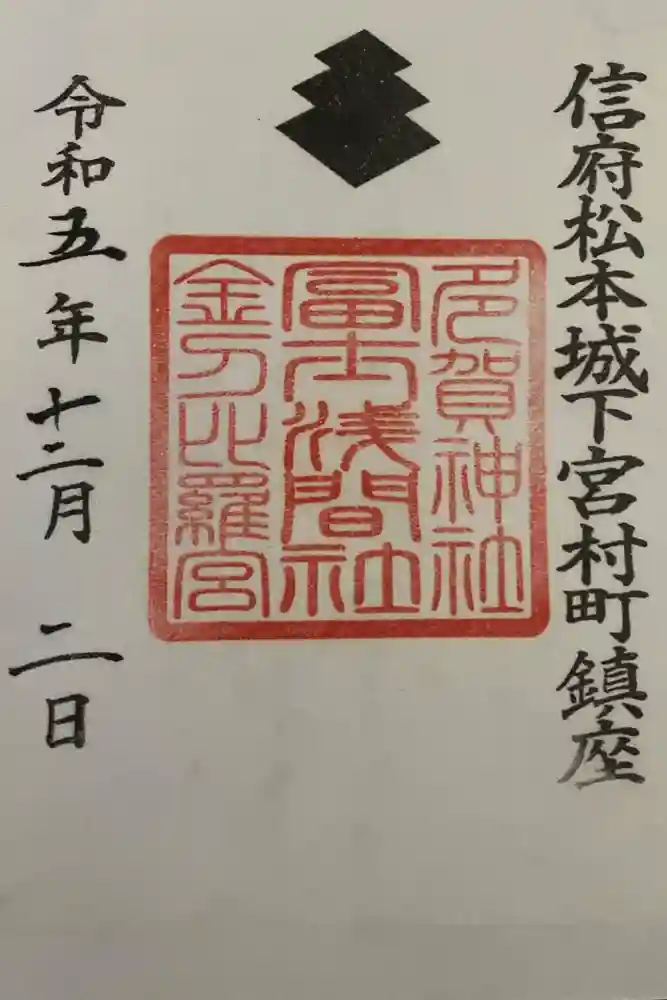 信府松本城下宮村町鎮座
多賀神社
冨士浅間社
金刀比羅宮
令和五年十二月 二日